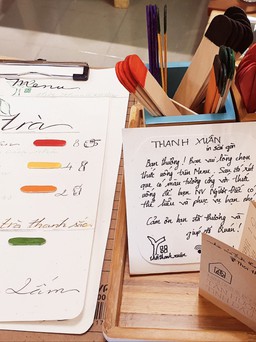 Menu
trà
trà thanh xuân
Lầm
THANH XUÂN
in sài gòn
Bạn thương! Bạn vui lòng chọn
thức uống trên Menu, Sau đó rút
que có màu tương ứng với thức
uống để bạn NV Người Điếc có
thể hiểu và phục vụ bạn nhé
Cảm ơn bạn đã thương và
giúp đỡ Quán!
thanhxuân